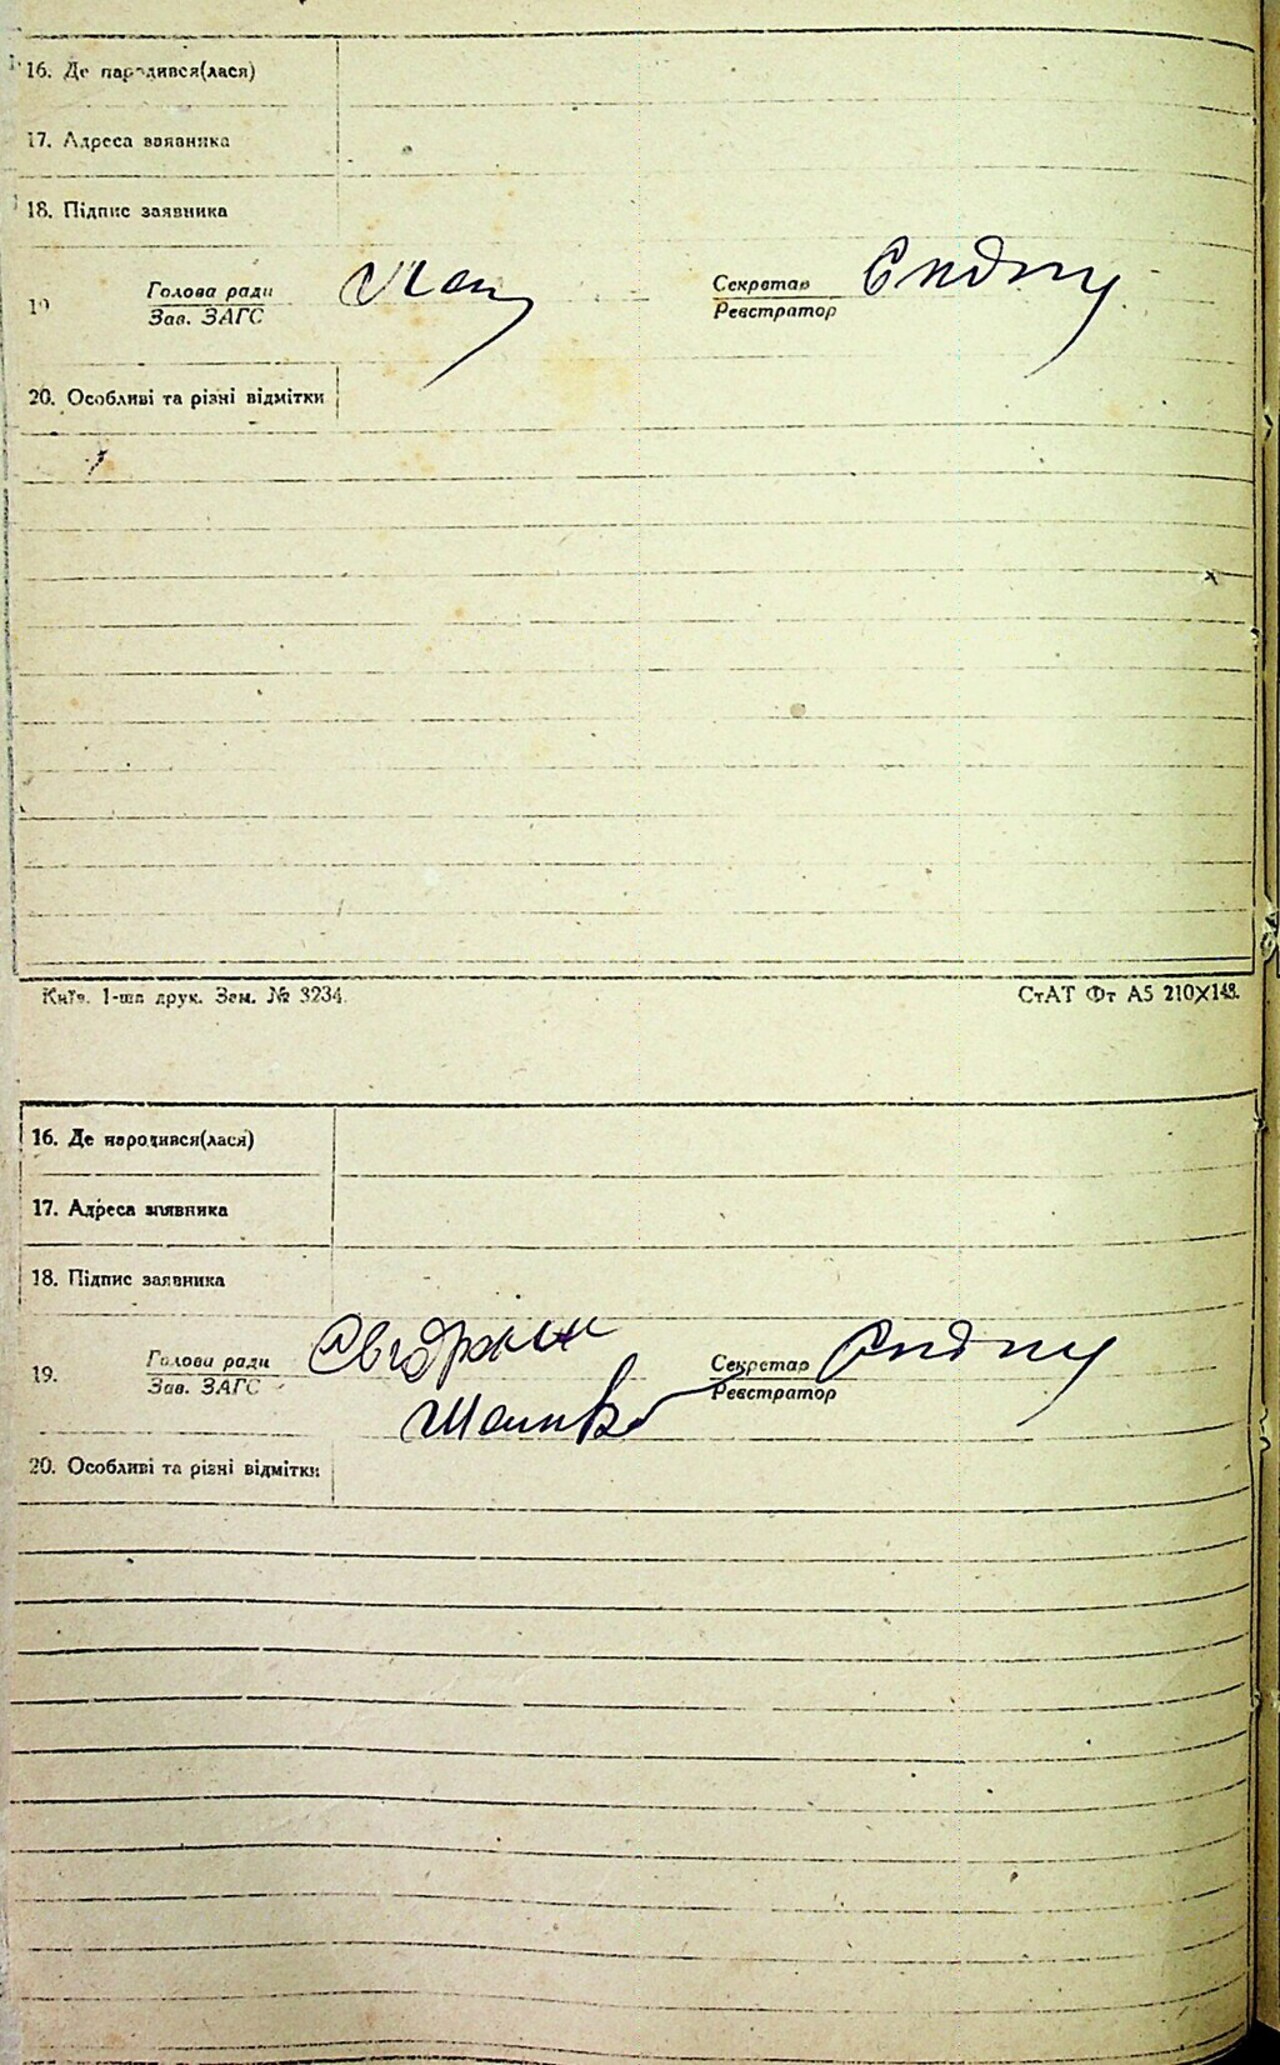 16. Де народився(лася)
17. Адреса заявника
18. Підпис заявника
19
Голова ради
Зав. ЗАГС
Секретар
Реєстратор
20. Особливі та різні відмітки
Київ. 1-ша друк. Зам. № 3234.
СтАТ Фт А5 210×148.
16. Де народився(лася)
17. Адреса заявника
18. Підпис заявника
19.
Голова ради
Зав. ЗАГС
Секретар
Реєстратор
20. Особливі та різні відмітки